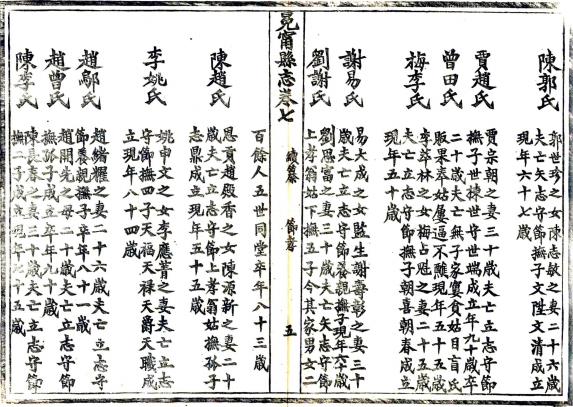 陳郭氏
郭世珍之女陳志敏之妻二十六歲
夫亡矢志守節撫子文陛文清成立
現年六十七歲
賈趙氏
賈宗朝之妻三十歲夫亡立志守節
撫子世棟世守世端成立年九十歲卒
曾田氏
二十歲夫亡無子家寠貧姑目盲氏
販菜奉姑屢逼不醮現年五十五歲
梅李氏
李萃林之女梅占魁之妻二十五歲
夫亡立志守節撫子朝喜朝春成立
現年五十歲
謝易氏
易大成之女監生謝壽彰之妻三十
歲夫亡立志守節養親撫子現年六十歲
劉謝氏
劉思富之妻三十歲夫亡矢志守節
上孝翁姑下撫五子今其家男女二
冕甯縣志卷七
續纂
節孝
五
百餘人五世同堂卒年八十三歲
陳趙氏
恩貢趙殿香之女陳源新之妻二十
歲夫亡立志守節上孝翁姑撫孤子
志鼎成立現年五十五歲
李姚氏
姚申文之女李應蒼之妻夫亡立志
守節撫四子天福天祿天爵天職成
立現年八十四歲
趙鄔氏
趙緒耀之妻二十六歲夫亡立志守
節養親撫子卒年八十一歲
趙曾氏
趙開先之母二十歲夫亡立志守節
撫孤子成立卒年九十歲
陳李氏
陳長春之妻三十歲夫亡立志守節
撫二子成立現年七十五歲